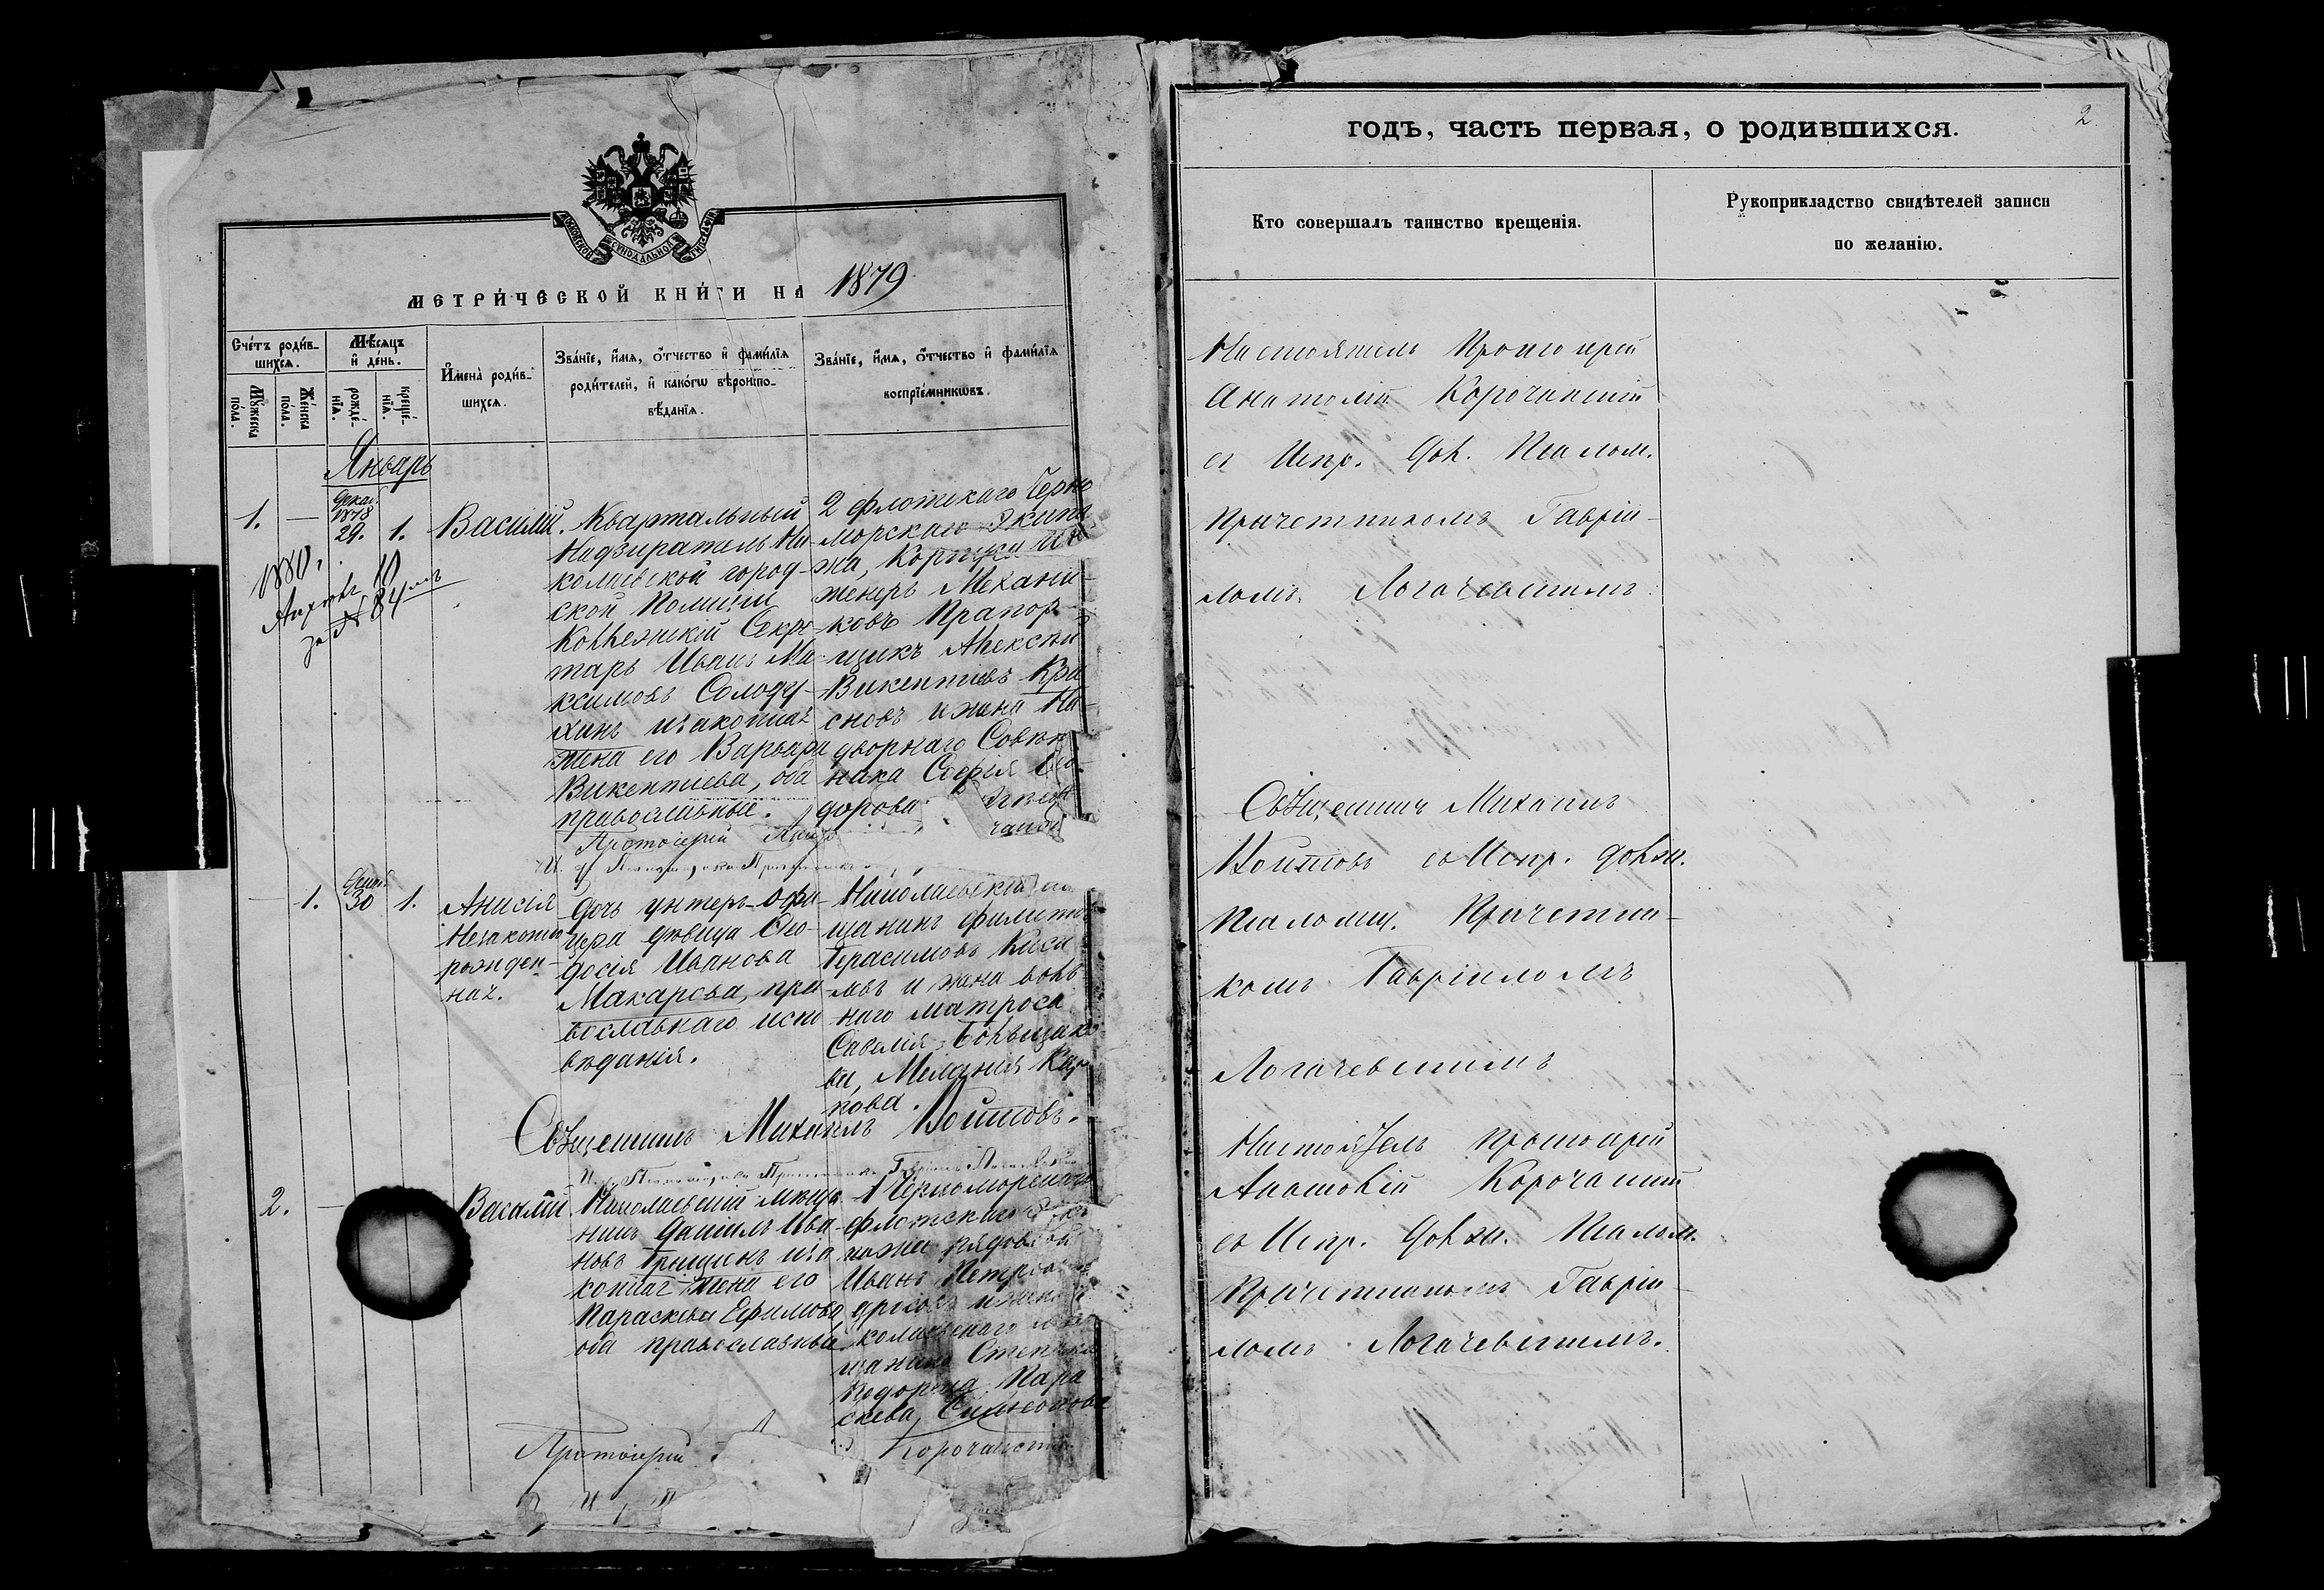 МОСКОВСКОЙ СѴНОДАЛЬНОЙ ТИПОГРАФІИ
МЕТРИ́ЧЕСКОЙ КНИ́ГИ НА 1879
Сче́тъ роди́в-
шихсѧ.
Мѣ́сяцъ
и҆ де́нь.
И҆мена̀ роди́в-
шихсѧ.
Зва́нїе, и҆́мѧ, о҆́тчество и҆ фами́лїѧ
роди́телей, и҆ како́гѡ вѣроиспо-
вѣ́данїѧ.
Зва́нїе, и҆́мѧ, о҆́тчество и҆ фами́лїѧ
воспрїе́мникѡвъ.
Мꙋ́жеска
по́ла.
Же́нска
по́ла.
рожде́-
нїѧ.
креще́-
нїѧ.
Январь
1. — Декаб. 1878 29. 1. Василій.
1880,
Апрѣль 10
за № 84
Квартальный
Надзиратель Ни-
колаевской город-
ской Полиціи
Коллежскій Секре-
тарь Иванъ Ма-
ксимовъ Солоду-
хинъ изаконная
жена его Варвара
Викентіева, оба
православные.
2 флотскаго Черно
морскаго Экипа
жа, Корпуса Ин
женеръ Механи-
ковъ Прапор-
щикъ Алексѣй
Викентіевъ Кра
сновъ и жена На-
дворнаго Совѣт
ника Софія
дорова
Протоіерей
— 1. 30 1. Анисія
Незаконно
рожден-
ная.
Дочь унтеръ-офи-
цера дѣвица Ѳео-
досія Иванова
Макарова, пра-
вославнаго испо
вѣданія.
Николаевскій
щанинъ Филиппъ
Герасимовъ
и жена воль-
наго матроса
Савелія
ва, Меланія Кар
пова.
Священникъ Михаилъ Войтовъ.
2. — Василій.
Николаевскій мѣща
нинъ Даніилъ Ива-
новъ Грищенъ иза
конная жена его
Параскева Ефимова,
оба православные.
1 Черноморскаго
флотскаго
пажа рядовой
Иванъ Петровъ
и жена
колаевскаго
щанина Степана
Пара
скева Симеонова
Протоіерей Корочанскій
годъ, часть первая, о родившихся.
2.
Кто совершалъ таинство крещенія.
Рукоприкладство свидѣтелей записи
по желанію.
Настоятель Протоіерей
Анатолій Корочанскій
съ Испр. Дол. Псалом.
Причетникомъ Гавріи-
ломъ Логачевскимъ
Священникъ Михаилъ
Войтовъ съ Испр. должн.
Псаломщ. Причетни-
комъ Гавріиломъ
Логачевскимъ
Настоятель Протоіерей
Анатолій Корочанскій
съ Испр. Должн. Псалом.
Причетникомъ Гавріи-
ломъ Логачевскимъ.